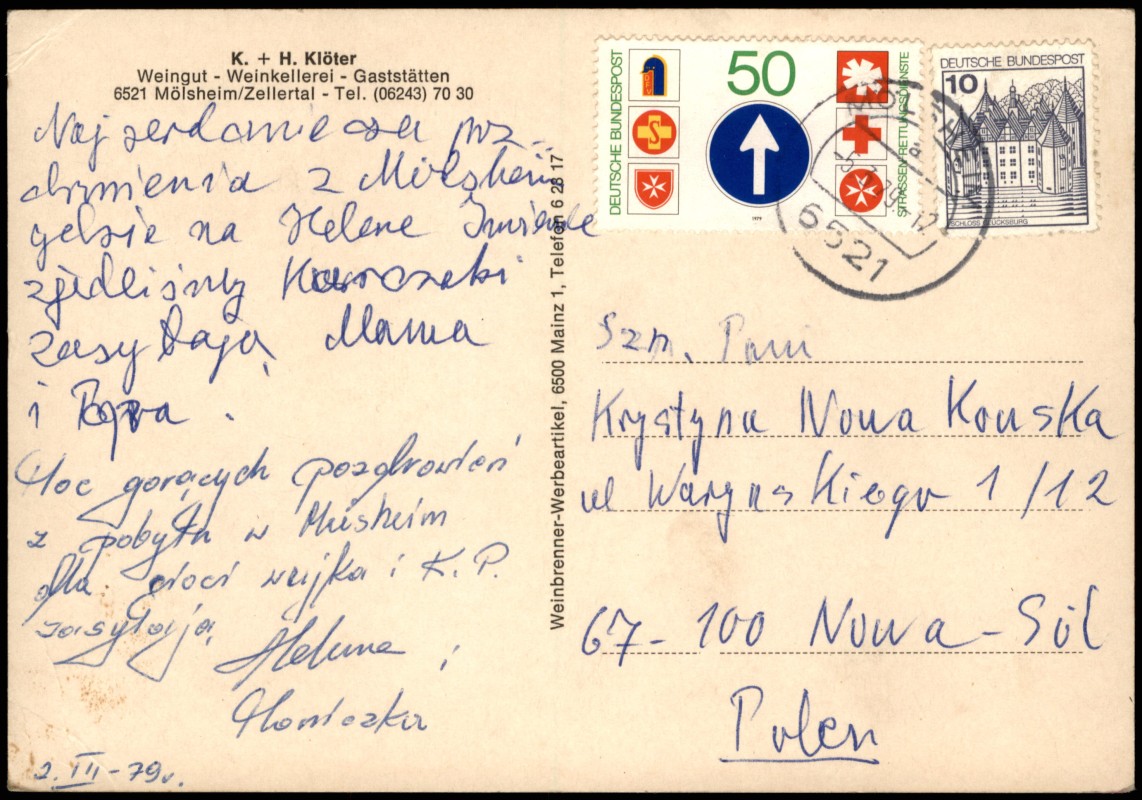 K. + H. Klöter
Weingut - Weinkellerei - Gaststätten
6521 Mölsheim/Zellertal - Tel. (06243) 70 30
Naj serdeczniejsza poz-
drzmienia z Mölsheim
gdzie na Helene
zjedliśmy
zasyłają Mama
i
Moc gorących pozdrowień
z pobytu w
dla cioci wujka i K. P.
zasyłają
Helena i

2. III - 79r.
Weinbrenner-Werbeartikel, 6500 Mainz 1, Telefon 6 28 17
DEUTSCHE BUNDESPOST
50
STRASSEN-RETTUNGSDIENSTE
1979
DEUTSCHE BUNDESPOST
10
SCHLOSS GLÜCKSBURG
MÖLSHEIM
6521
Szn. Pani
Krystyna Nowa Konska
ul Waryńskiego 1/12
67-100 Nowa-Sól
Polen